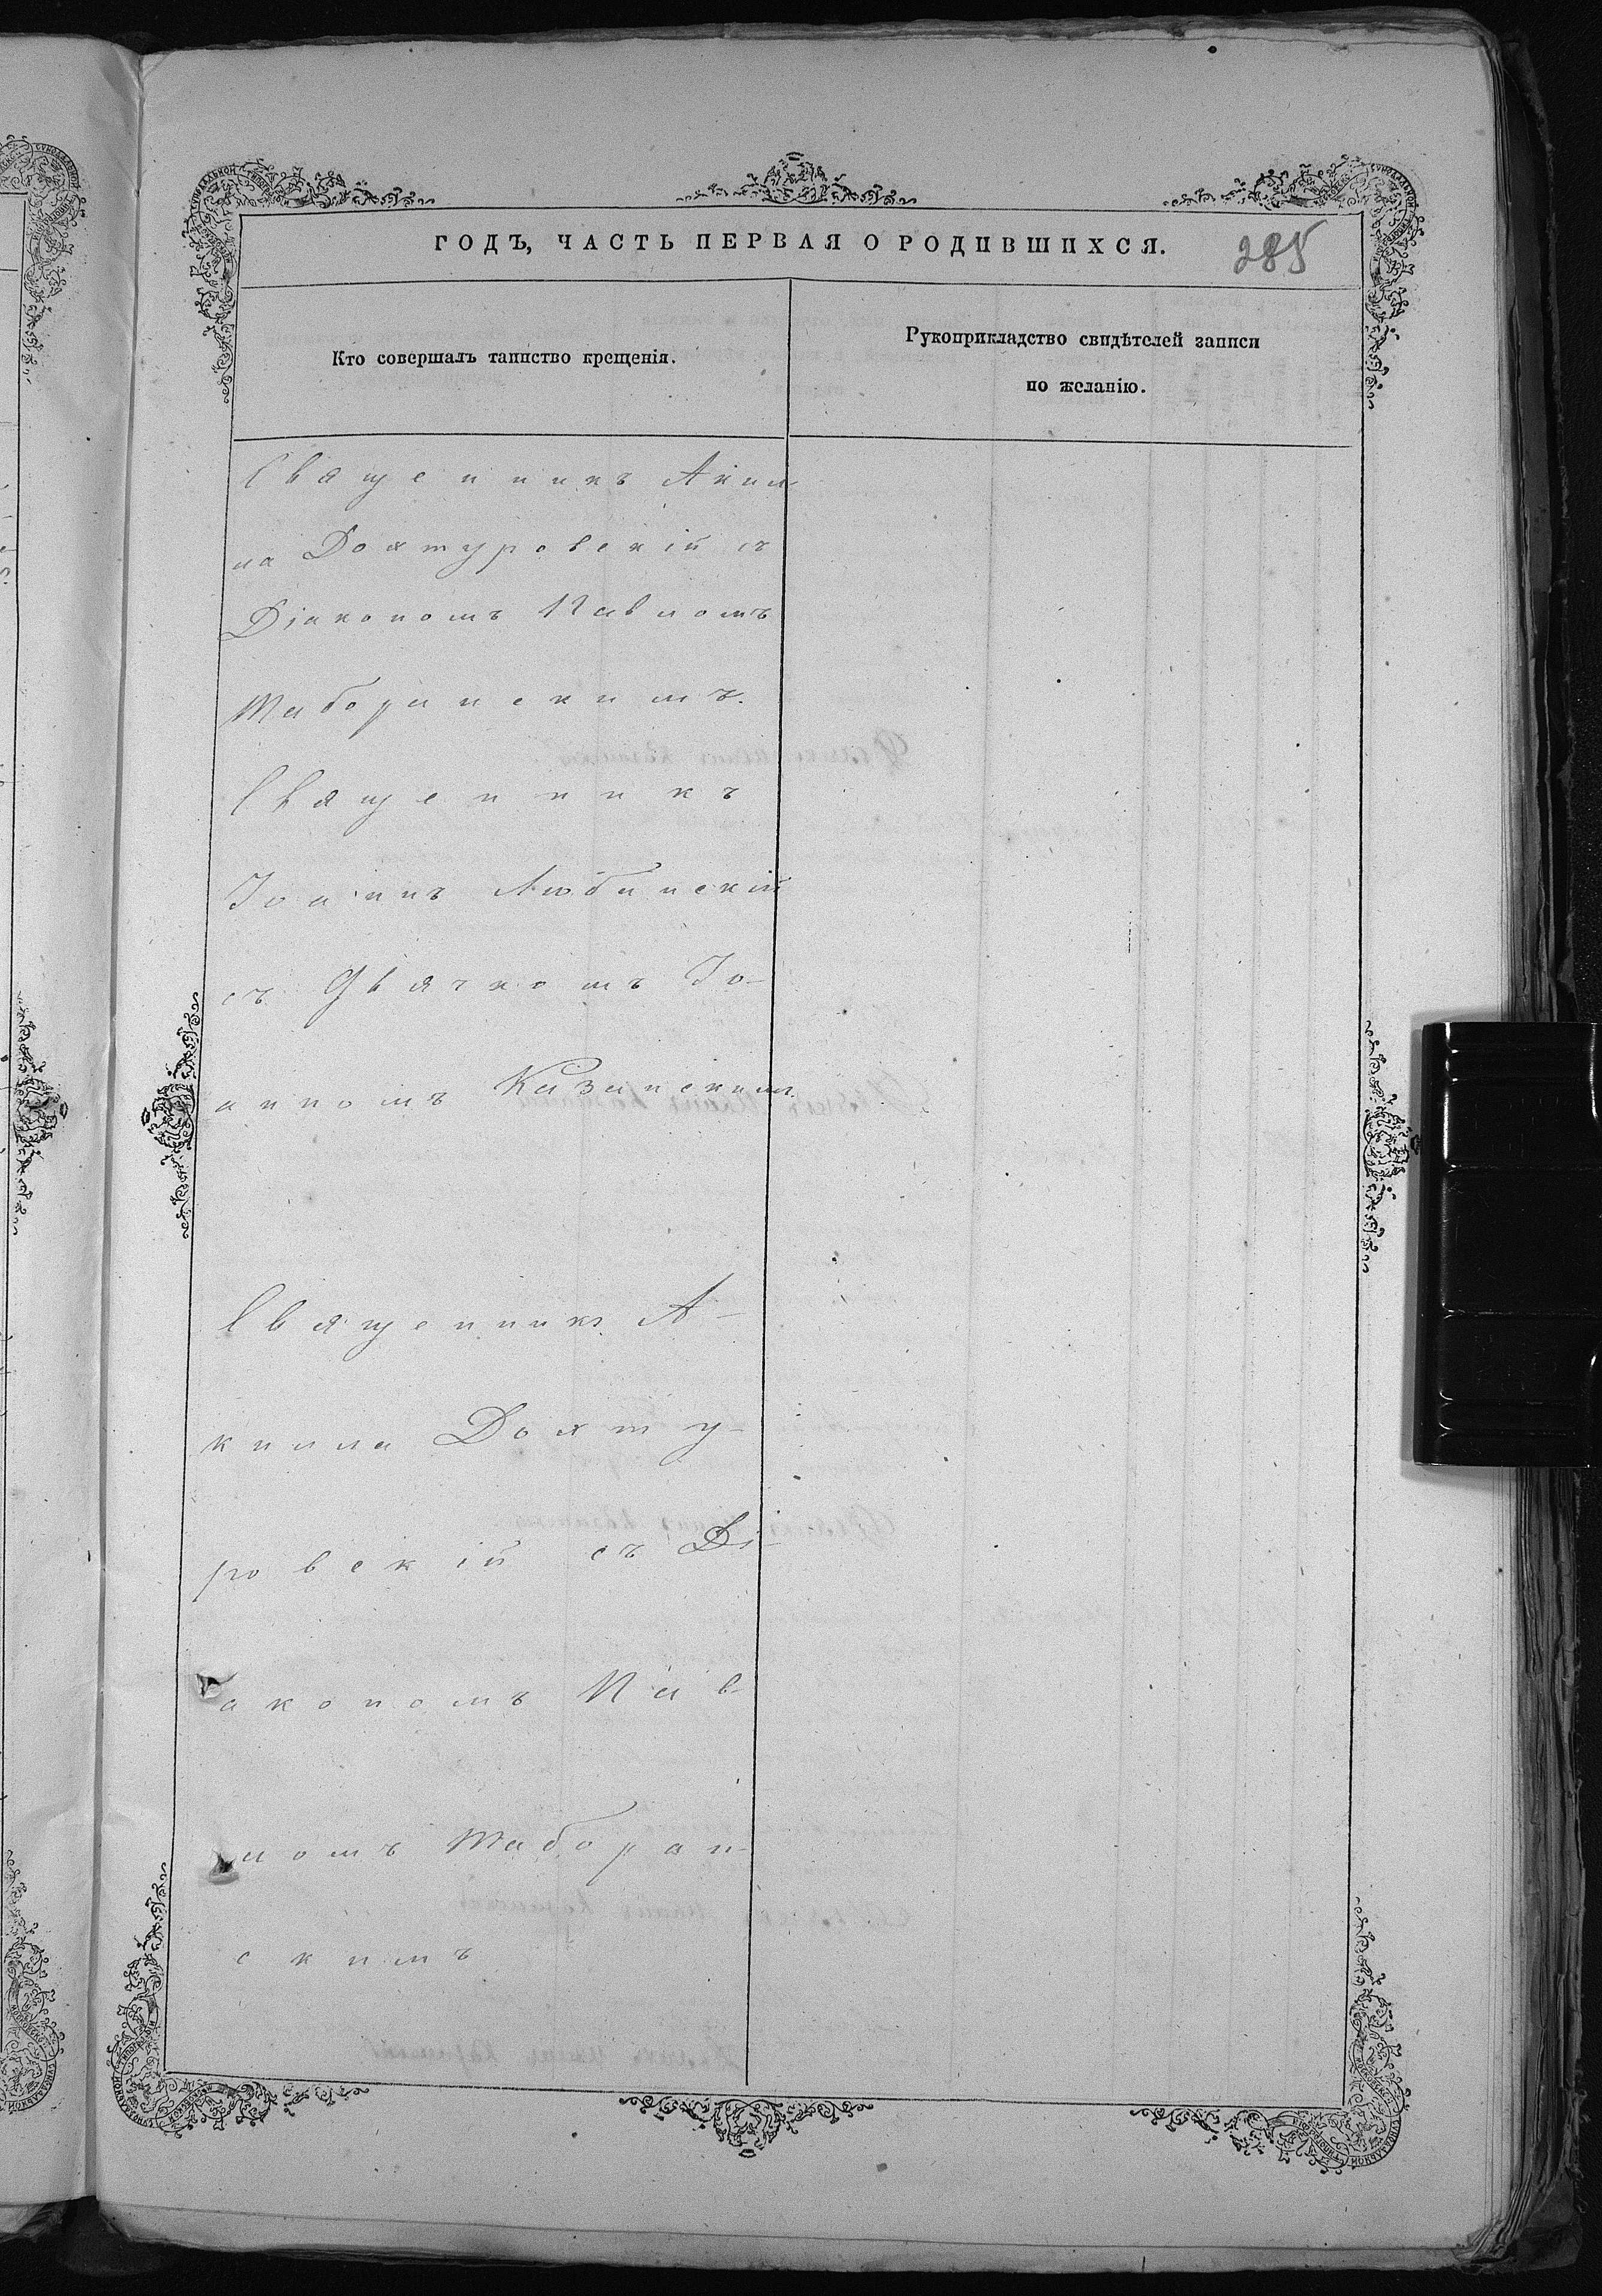 ГОДЪ, ЧАСТЬ ПЕРВАЯ О РОДИВШИХСЯ.
285
Кто совершалъ таинство крещенія.
Рукоприкладство свидѣтелей записи
по желанію.
Священникъ Акил-
ла Дохтуровскій съ
Діакономъ Павломъ
Таборинскимъ.
Священникъ
Іоаннъ Любинскій
съ Дьячкомъ Іо-
анномъ Казанскимъ.
Священникъ А-
килла Дохту-
ровскій съ Ді-
акономъ Пав-
ломъ Таборин-
скимъ